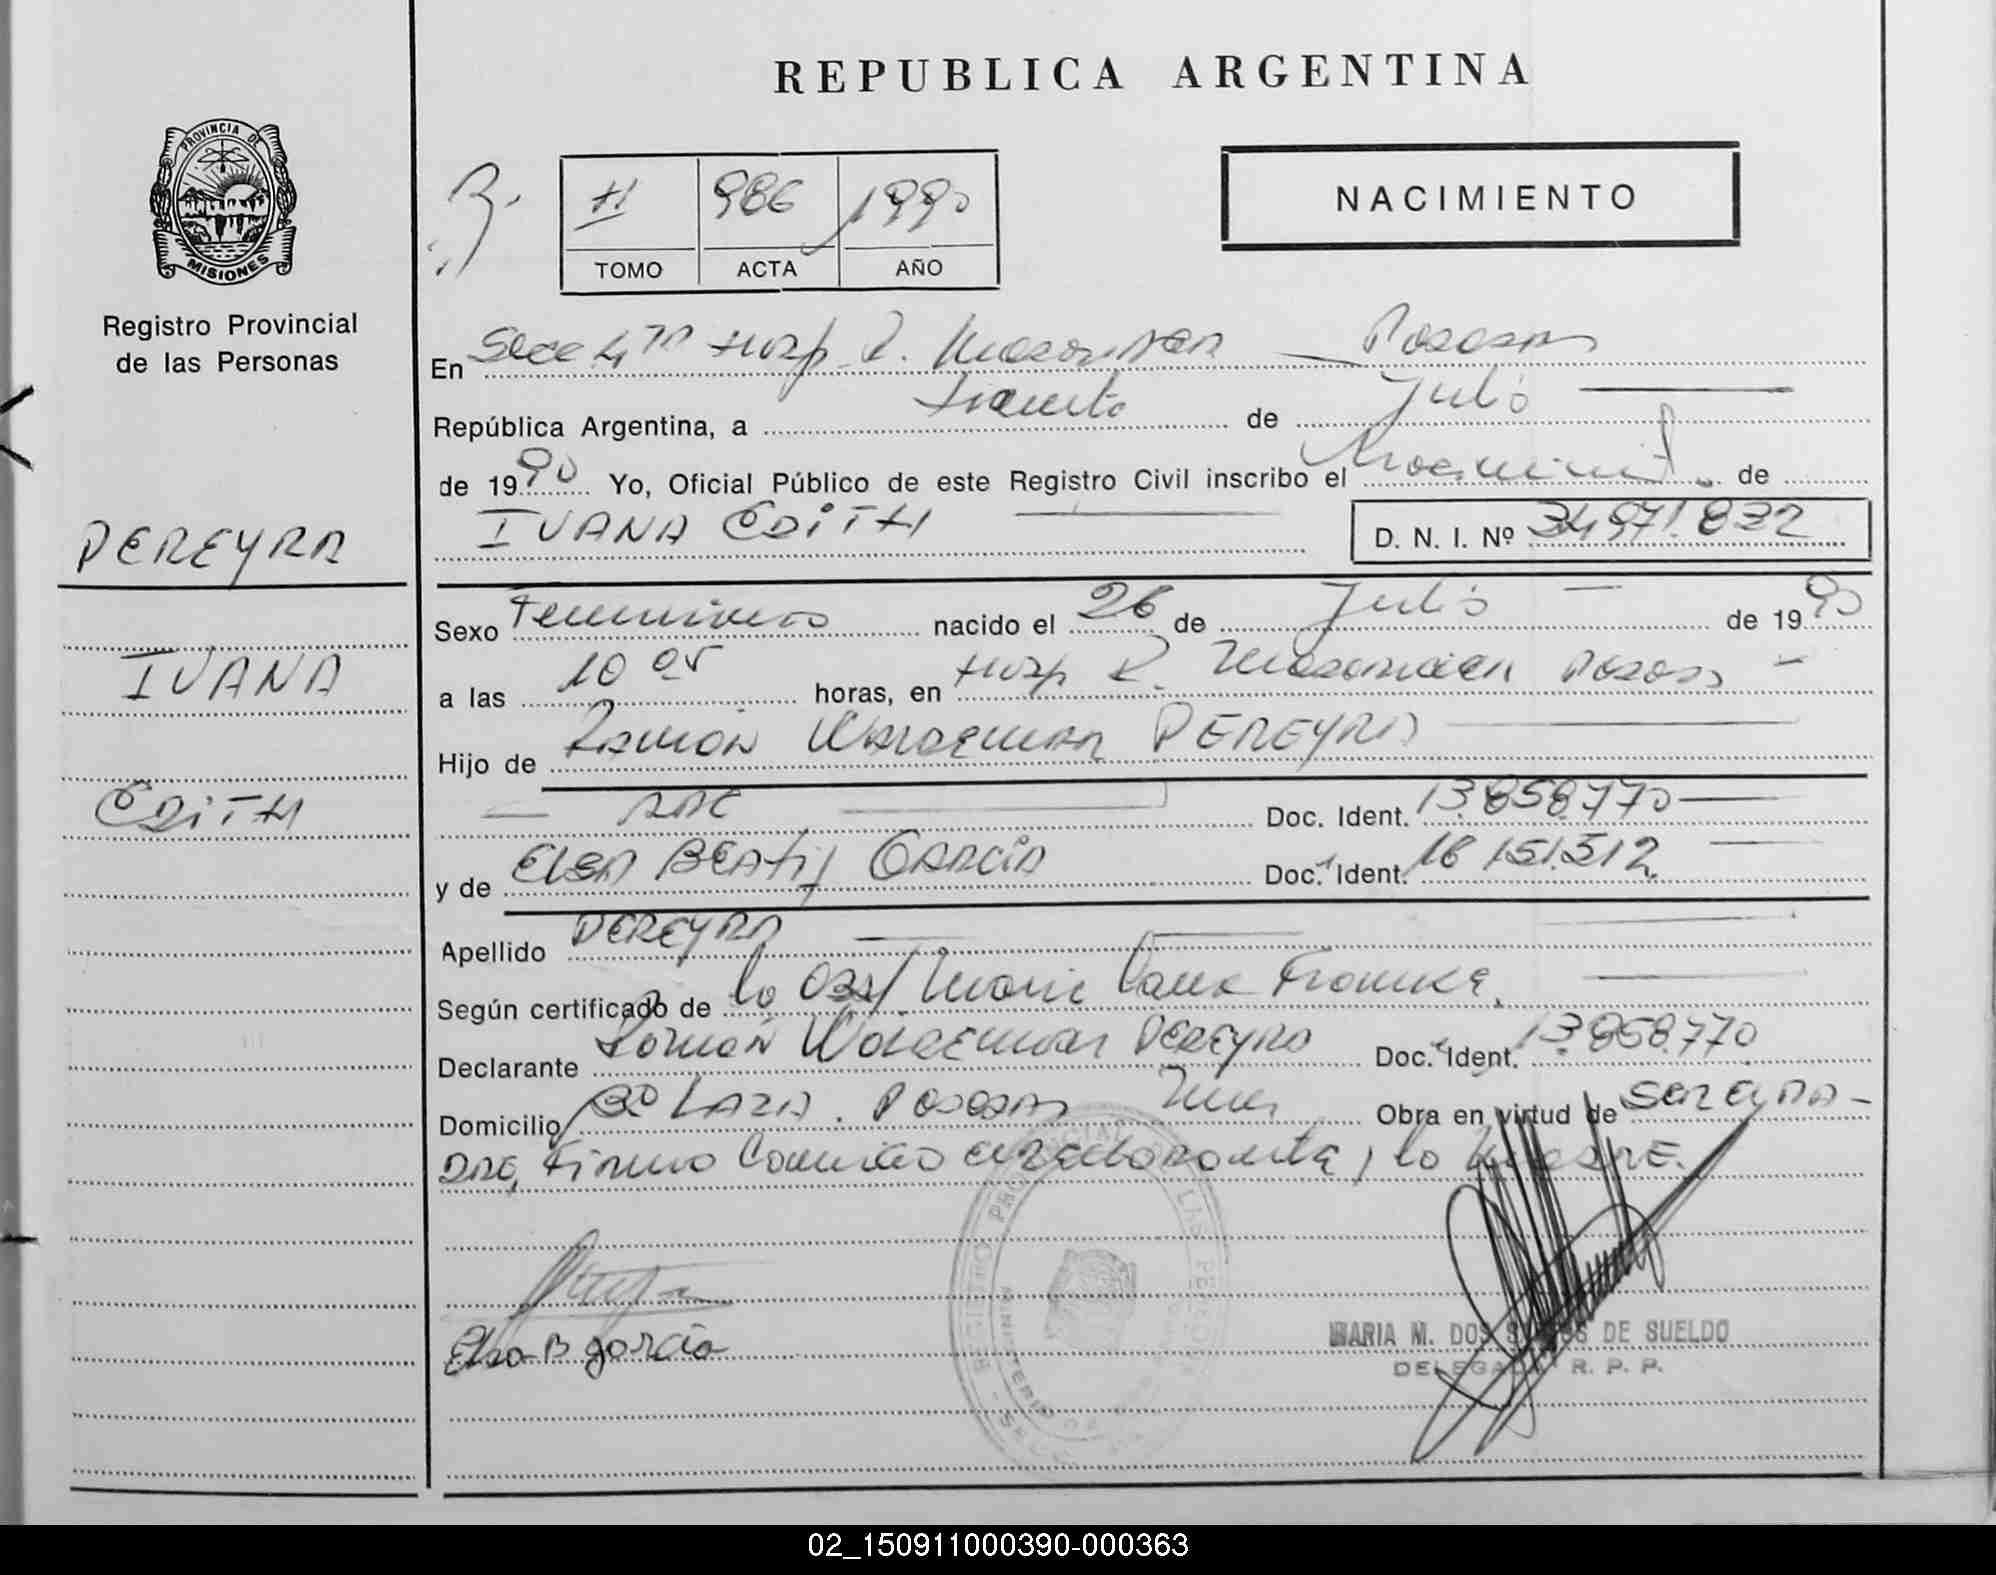 REPUBLICA ARGENTINA
PROVINCIA DE
MISIONES
Registro Provincial
de las Personas
II 986 1990
TOMO ACTA AÑO
NACIMIENTO
En Secc 4ta Hosp R. Madariaga — Posadas
República Argentina, a treinta de Julio
de 1990 Yo, Oficial Público de este Registro Civil inscribo el Nacimiento de
IVANA EDITH
D. N. I. Nº 34971.832
PEREYRA
IVANA
EDITH
Sexo Femenino nacido el 26 de Julio de 1990
a las 10 05 horas, en Hosp R. Madariaga Posadas
Hijo de Ramón Waldemar PEREYRA
Doc. Ident. 13.858.770
y de Elsa Beatriz García Doc. Ident. 16 151.512
Apellido PEREYRA
Según certificado de la Obst
Declarante Ramón Waldemar PEREYRA Doc. Ident. 13.858.770
Domicilio Bº Posadas Mnes Obra en virtud de ser el PA-
DRE, Firma la MADRE.
Elsa B garcia
MARIA M. DOS SANTOS DE SUELDO
DELEGADA R. P. P.
02_150911000390-000363